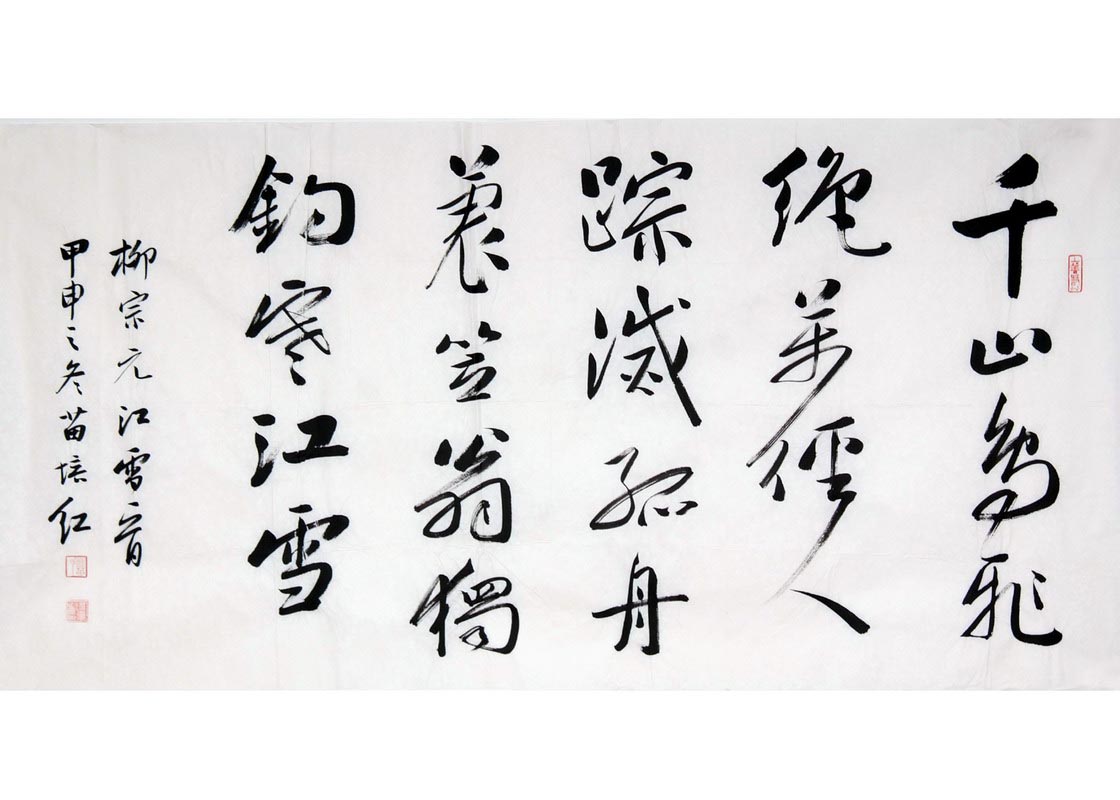 千山鳥飛
絕萬徑人
踪滅孤舟
蓑笠翁獨
釣寒江雪
柳宗元江雪一首
甲申之冬苗培红